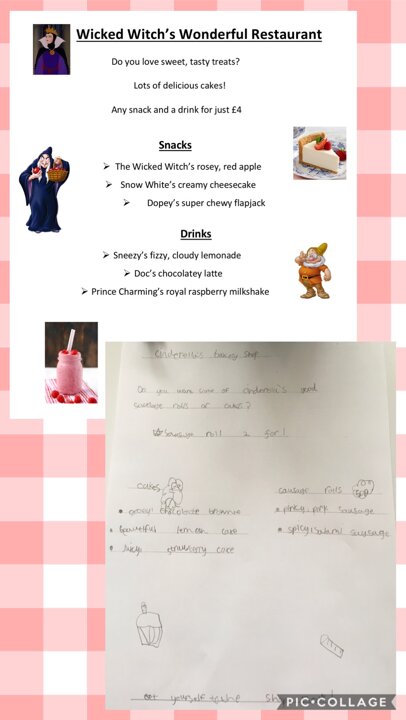 Wicked Witch's Wonderful Restaurant
Do you love sweet, tasty treats?
Lots of delicious cakes!
Any snack and a drink for just £4
Snacks
➢ The Wicked Witch's rosey, red apple
➢ Snow White's creamy cheesecake
➢ Dopey's super chewy flapjack
Drinks
➢ Sneezy's fizzy, cloudy lemonade
➢ Doc's chocolatey latte
➢ Prince Charming's royal raspberry milkshake
Cinderella's bakery Shop
Do you want some of good
sausage rolls or cakes?
Sausage roll 2 for 1
cakes
• chocolate
• lemon cake
• cake
sausage rolls
• pinky pork sausage
• spicy salami sausage
yourself to the
PIC•COLLAGE